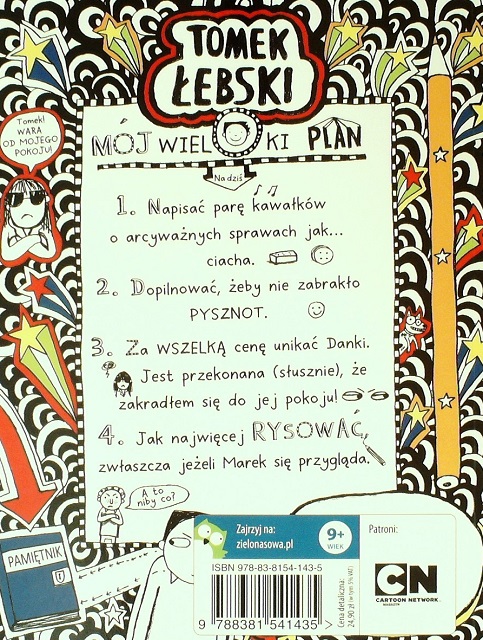 TOMEK
ŁEBSKI
Tomek!
WARA
OD MOJEGO
POKOJU!
MÓJ WIELKI PLAN
Na dziś
1. Napisać parę kawałków
o arcyważnych sprawach jak...
ciacha.
2. Dopilnować, żeby nie zabrakło
PYSZNOT.
3. Za WSZELKĄ cenę unikać Danki.
Jest przekonana (słusznie), że
zakradłem się do jej pokoju!
4. Jak najwięcej RYSOWAĆ,
zwłaszcza jeżeli Marek się przygląda.
A to
niby co?
PAMIĘTNIK
Zajrzyj na:
zielonasowa.pl
9+
WIEK
Patroni:
ISBN 978-83-8154-143-5
9 788381 541435
Cena detaliczna:
24,90 zł (w tym 5% VAT)
CN
CARTOON NETWORK
MAGAZYN